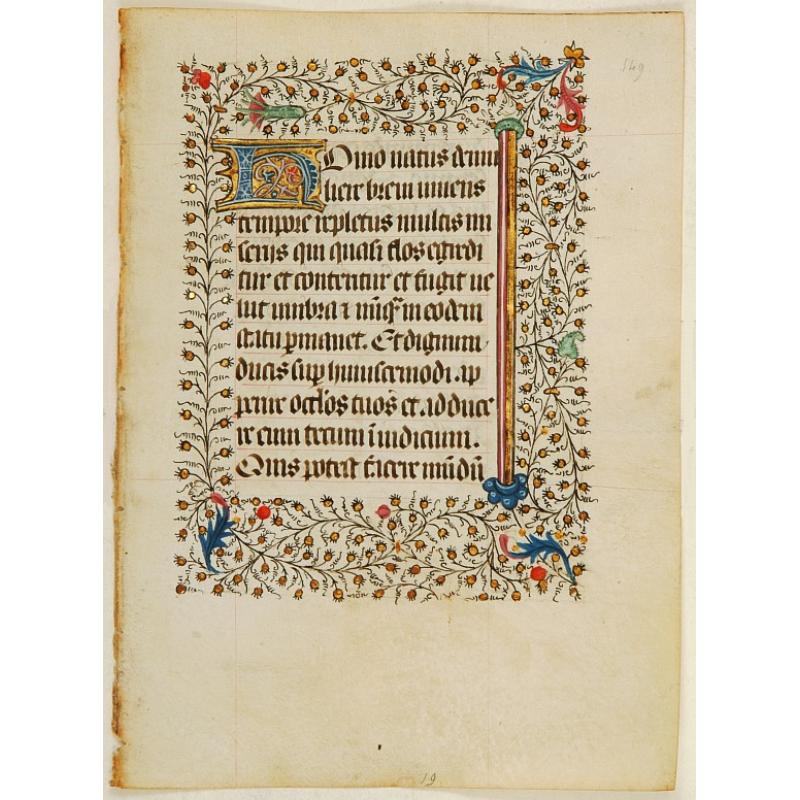 549
Homo natus de mu
liere breui uiuens
tempore repletus multis mi
serijs qui quasi flos egredi
tur et conteritur et fugit ue
lut umbra ⁊ nūq̄ in eodem
statu pmanet. Et dignum
ducis sup huiuscemodi. ap
perire oc̄los tuos et. adduce
re eum tecum ī iudicium.
Quis potest facere mūdū
19